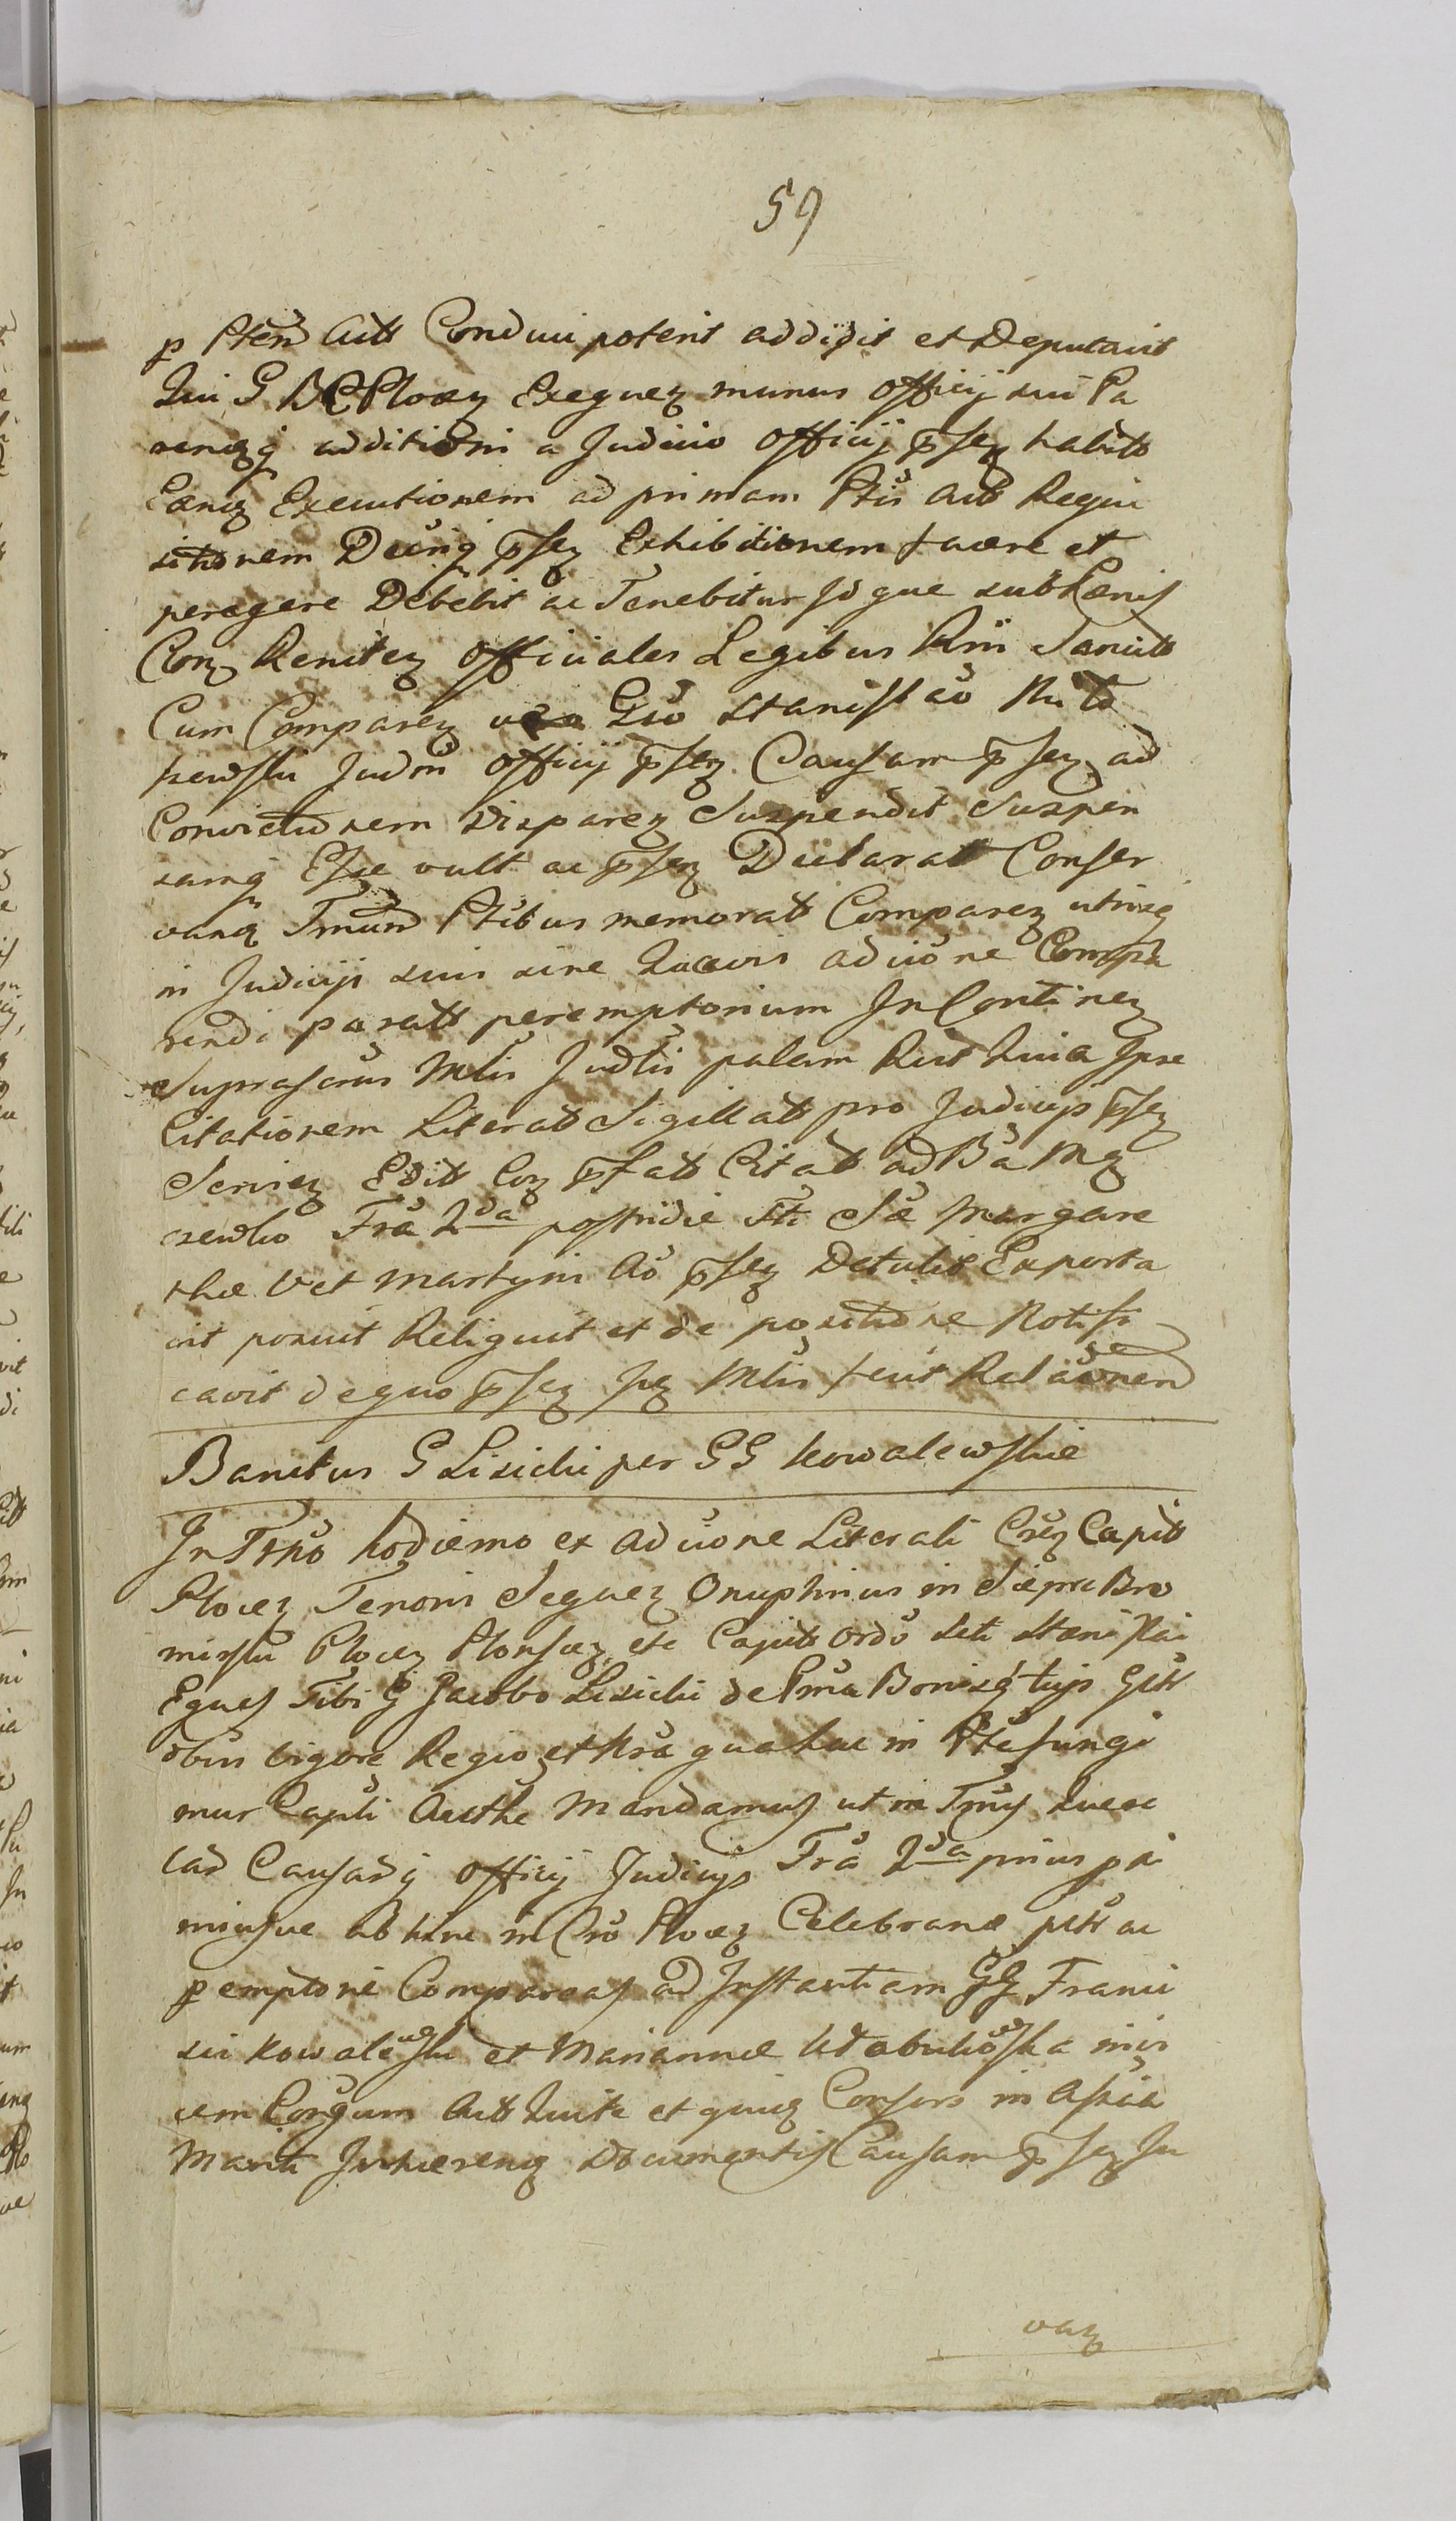 59
p Pten Actt Conduci poterit addidit et Deputavit
Qui G BC Plocen Exequen munus Officij sui Pa
renq additioni a Judicio Officij psen habitt
Eanq Executionem ad primam Ptis Actt Requi
sitionem Decriq psen Exhibitionem facere et
peragere Debebit ac Tenebitur Id que sub Pænis
Con Reniten Officiales Legibus Rni Sancitt
Cum Comparen Gso Stanislao
Judm Officij psen Causam psen ad
Convictionem Disparen Suspendit Suspen
samq Esse vult ac psen Declarat Conser
vanq Tmum Ptibus memoratt Comparen utrisq
in Judicijs suis sine Quavis adcione Compa
rendi paratt peremptorium In Continen
Suprascrus Mtlis Judlis palam Rect Quia Ipse
Citationem Literatt Sigillatt pro Judicijs psen
Servien Editt Con psatt Citatt ad Ba
Fra 2da postridie Sti Sæ Margare
thæ V et Martyris Ao psen Detulit Exporta
vit posuit Reliquit et de positione Notifi
cavit de quo psen Mtlis fecit Relacionem
Banitus G Lisicki per GG Kowalewskie
In Tmo hodierno ex adcione Literali Csen Capitt
Plocen Tenoris Sequen Onuphrius in Sieprc Bro
mirski Plocen Plonscen etc Capitt Ordo Sti Stanislai
Eques Tibi G Jacobo Lisicki de Pma Bonisq tujs Gntt
obus vigore Regio et Nra qua hac in Pte fungi
mur Captli Autthe Mandamus ut in Tmis Quere
lad Causadq Officij Judicijs Fra 2da prius pxi
miusve abhinc in Cro Plocen Celebran petr ac
pemptorie Compareas ad Instantiam GG Franci
sci Kowalewski et Mariannæ invi
cem Congum Actt Quitt et quiq Consors in Assia
Mariti Inhæren Documentis Causam psen In
van